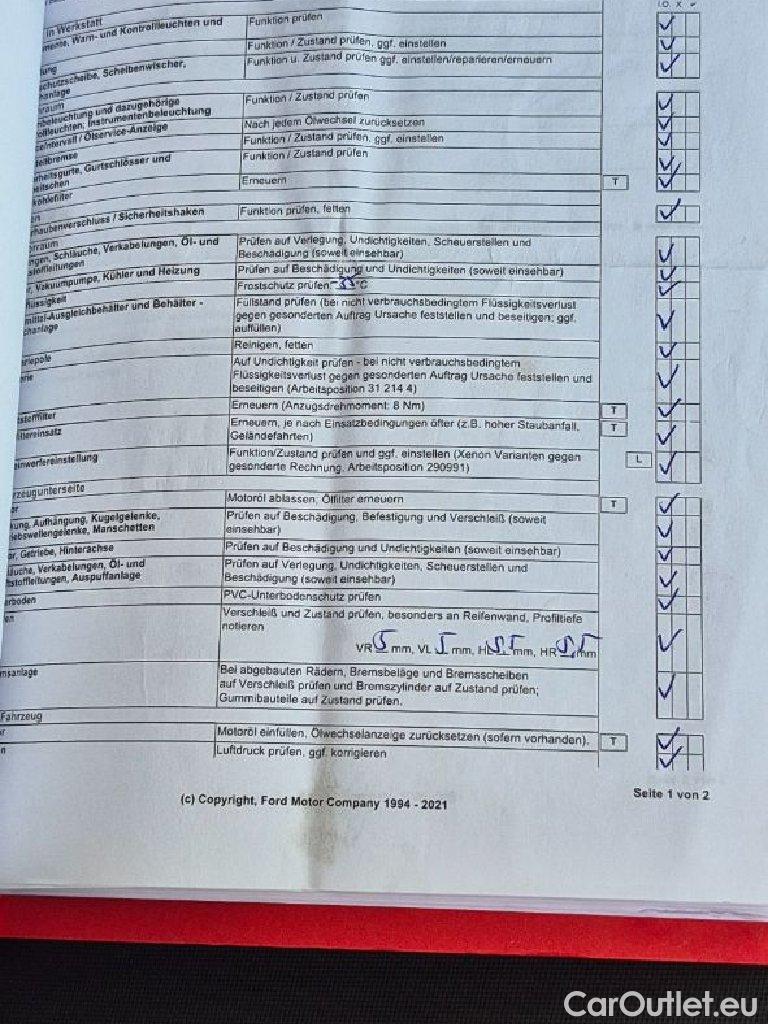 I.O. X
in Werkstatt
Warn- und Kontrollleuchten und
Funktion prüfen
Funktion / Zustand prüfen, ggf. einstellen
Scheibenwischer,
Funktion u. Zustand prüfen ggf. einstellen/reparieren/erneuern
und dazugehörige
Instrumentenbeleuchtung
Funktion / Zustand prüfen
/ Ölservice-Anzeige
Nach jedem Ölwechsel zurücksetzen
Funktion / Zustand prüfen, ggf. einstellen
Gurtschlösser und
Funktion / Zustand prüfen
Erneuern
T
/ Sicherheitshaken
Funktion prüfen, fetten
Schläuche, Verkabelungen, Öl- und
Prüfen auf Verlegung, Undichtigkeiten, Scheuerstellen und
Beschädigung (soweit einsehbar)
Vakuumpumpe, Kühler und Heizung
Prüfen auf Beschädigung und Undichtigkeiten (soweit einsehbar)
Frostschutz prüfen -35°C
und Behälter -
Füllstand prüfen (bei nicht verbrauchsbedingtem Flüssigkeitsverlust
gegen gesonderten Auftrag Ursache feststellen und beseitigen; ggf.
auffüllen)
Reinigen, fetten
Auf Undichtigkeit prüfen - bei nicht verbrauchsbedingtem
Flüssigkeitsverlust gegen gesonderten Auftrag Ursache feststellen und
beseitigen (Arbeitsposition 31 214 4)
Erneuern (Anzugsdrehmoment: 8 Nm)
T
Erneuern, je nach Einsatzbedingungen öfter (z.B. hoher Staubanfall,
Geländefahrten)
T
Funktion/Zustand prüfen und ggf. einstellen (Xenon Varianten gegen
gesonderte Rechnung, Arbeitsposition 290991)
L
Motoröl ablassen, Ölfilter erneuern
T
Aufhängung, Kugelgelenke,
Manschetten
Prüfen auf Beschädigung, Befestigung und Verschleiß (soweit
einsehbar)
Getriebe, Hinterachse
Prüfen auf Beschädigung und Undichtigkeiten (soweit einsehbar)
Verkabelungen, Öl- und
Auspuffanlage
Prüfen auf Verlegung, Undichtigkeiten, Scheuerstellen und
Beschädigung (soweit einsehbar)
PVC-Unterbodenschutz prüfen
Verschleiß und Zustand prüfen, besonders an Reifenwand, Profiltiefe
notieren
VR 5 mm, VL 5 mm, mm, HR mm
Bei abgebauten Rädern, Bremsbeläge und Bremsscheiben
auf Verschleiß prüfen und Bremszylinder auf Zustand prüfen;
Gummibauteile auf Zustand prüfen.
Fahrzeug
Motoröl einfüllen, Ölwechselanzeige zurücksetzen (sofern vorhanden).
T
Luftdruck prüfen, ggf. korrigieren
(c) Copyright, Ford Motor Company 1994 - 2021
Seite 1 von 2
CarOutlet.eu